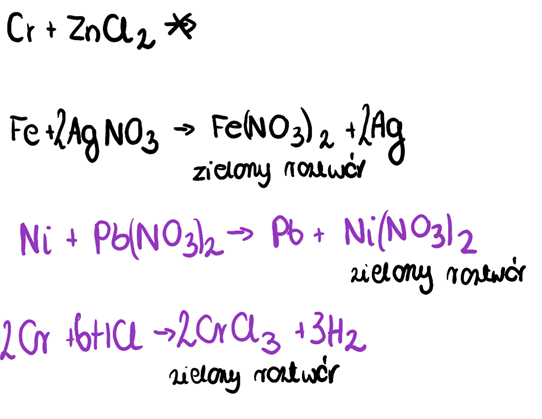 Cr + ZnCl₂ ↛
Fe + 2AgNO₃ → Fe(NO₃)₂ + 2Ag
zielony roztwór
Ni + Pb(NO₃)₂ → Pb + Ni(NO₃)₂
zielony roztwór
2Cr + 6HCl → 2CrCl₃ + 3H₂
zielony roztwór